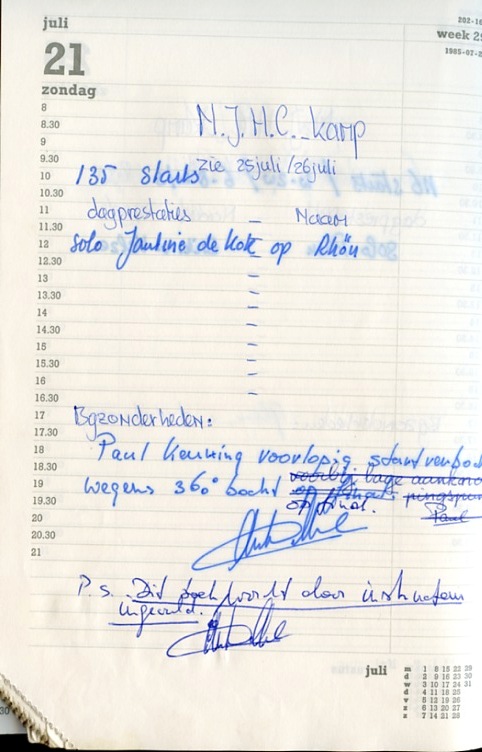 juli
202-16
week 29
21
1985-07-2
zondag
8
8.30
N.J.H.C. kamp
9
9.30
zie 25 juli / 26 juli
10
135 starts
10.30
11
dagprestaties - Naam
11.30
12
solo Jantine de Kok op Rhön
12.30
13
13.30
14
14.30
15
15.30
16
16.30
17
Bijzonderheden:
17.30
18
Paul Kenning voorlopig startverbod
18.30
voorbij lage aankomst
19
wegens 360° bocht op final.
19.30
Paul
20
20.30
21
P.s. Dit boek wordt door instructeurs
ingevuld.
juli
m 1 8 15 22 29
d 2 9 16 23 30
w 3 10 17 24 31
d 4 11 18 25
v 5 12 19 26
z 6 13 20 27
z 7 14 21 28
30